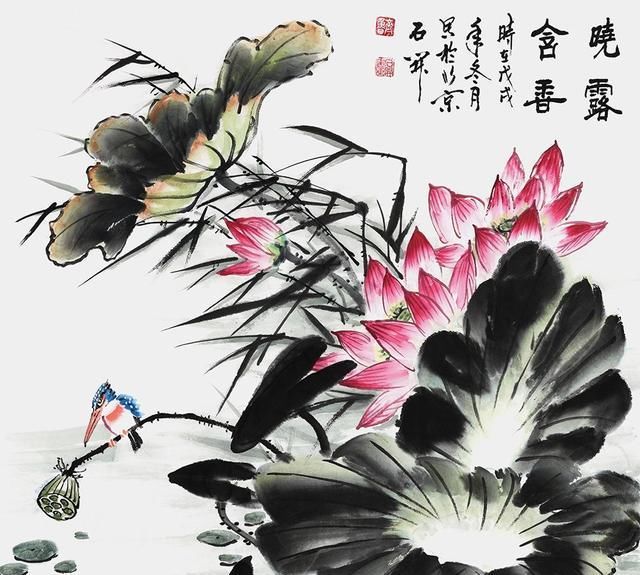 曉露
含香
時在戊戌
年冬月
写於北京
石祥